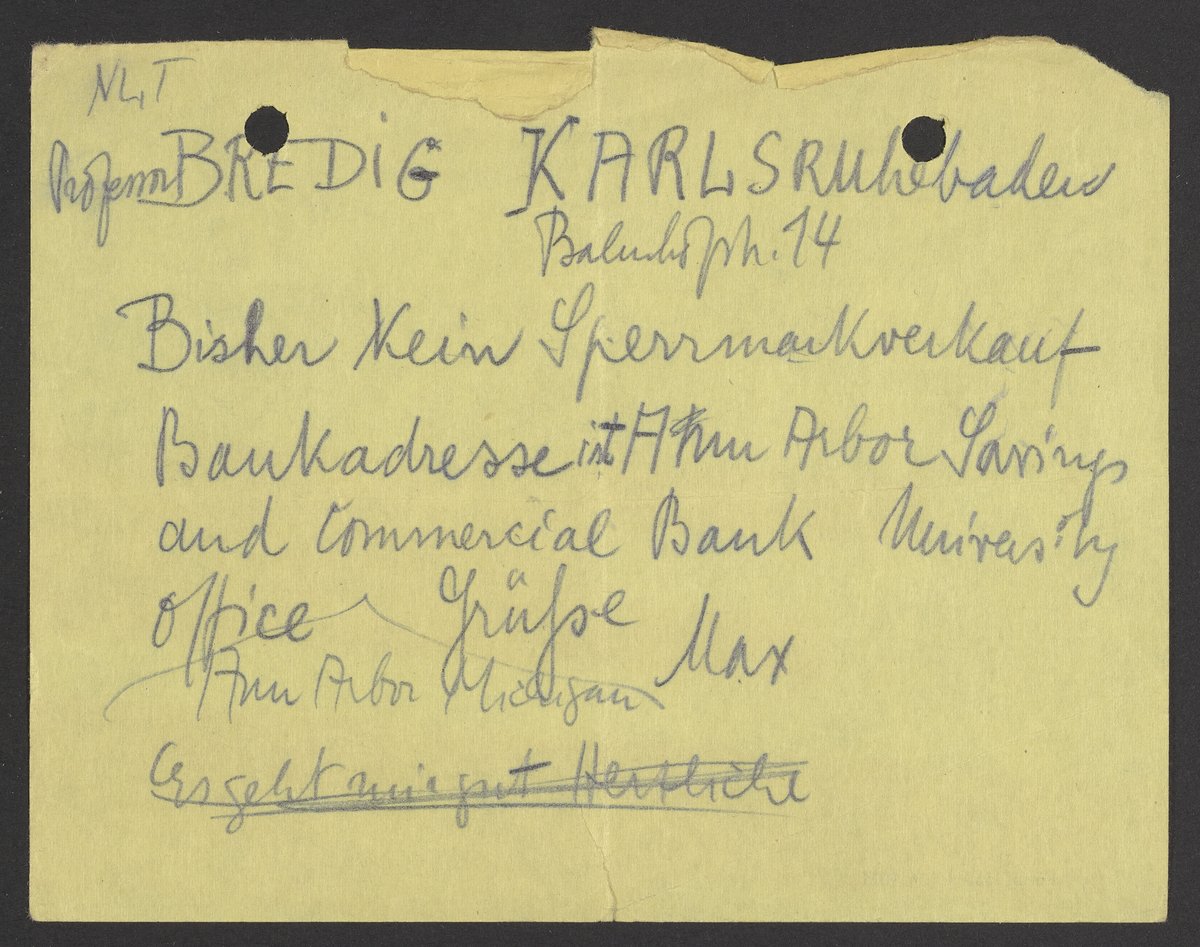 NLT
Professor BREDIG KARLSRUhebaden
Bahnhofstr. 14
Bisher Kein Sperrmarkverkauf
Bankadresse ist Ann Arbor Savings
and Commercial Bank University
office Grüße Max
Ann Arbor Michigan
Es geht mir gut Hertliche